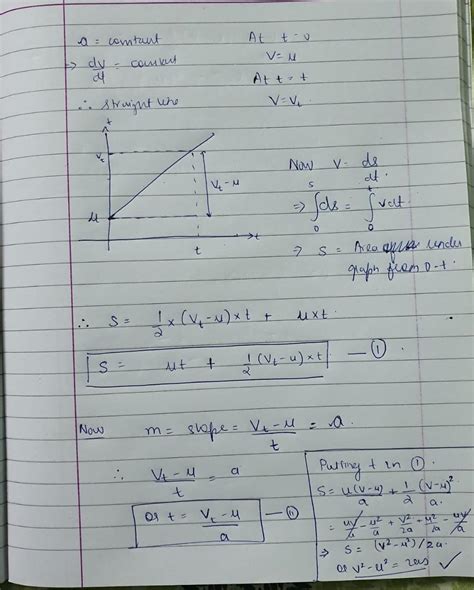 a = constant
At t = 0
⇒ dv/dt = constant
V = u
At t = t
∴ straight line
V = Vt
t
Vt
Vt - u
u
t
→t
Now V = ds/dt
⇒ ∫₀ˢ ds = ∫₀ᵗ vdt
⇒ S = Area under
graph from 0-t
∴ S = 1/2 × (Vt - u) × t + u×t
S = ut + 1/2 (Vt - u) × t — ①
Now m = slope = (Vt - u)/t = a
∴ (Vt - u)/t = a
or t = (Vt - u)/a — ⑪
Putting t in ①
S = u(v-u)/a + 1/2 (v-u)²/a
= uv/a - u²/a + v²/2a + u²/2a - uv/a
⇒ S = (v² - u²)/2a
or v² - u² = 2as ✓